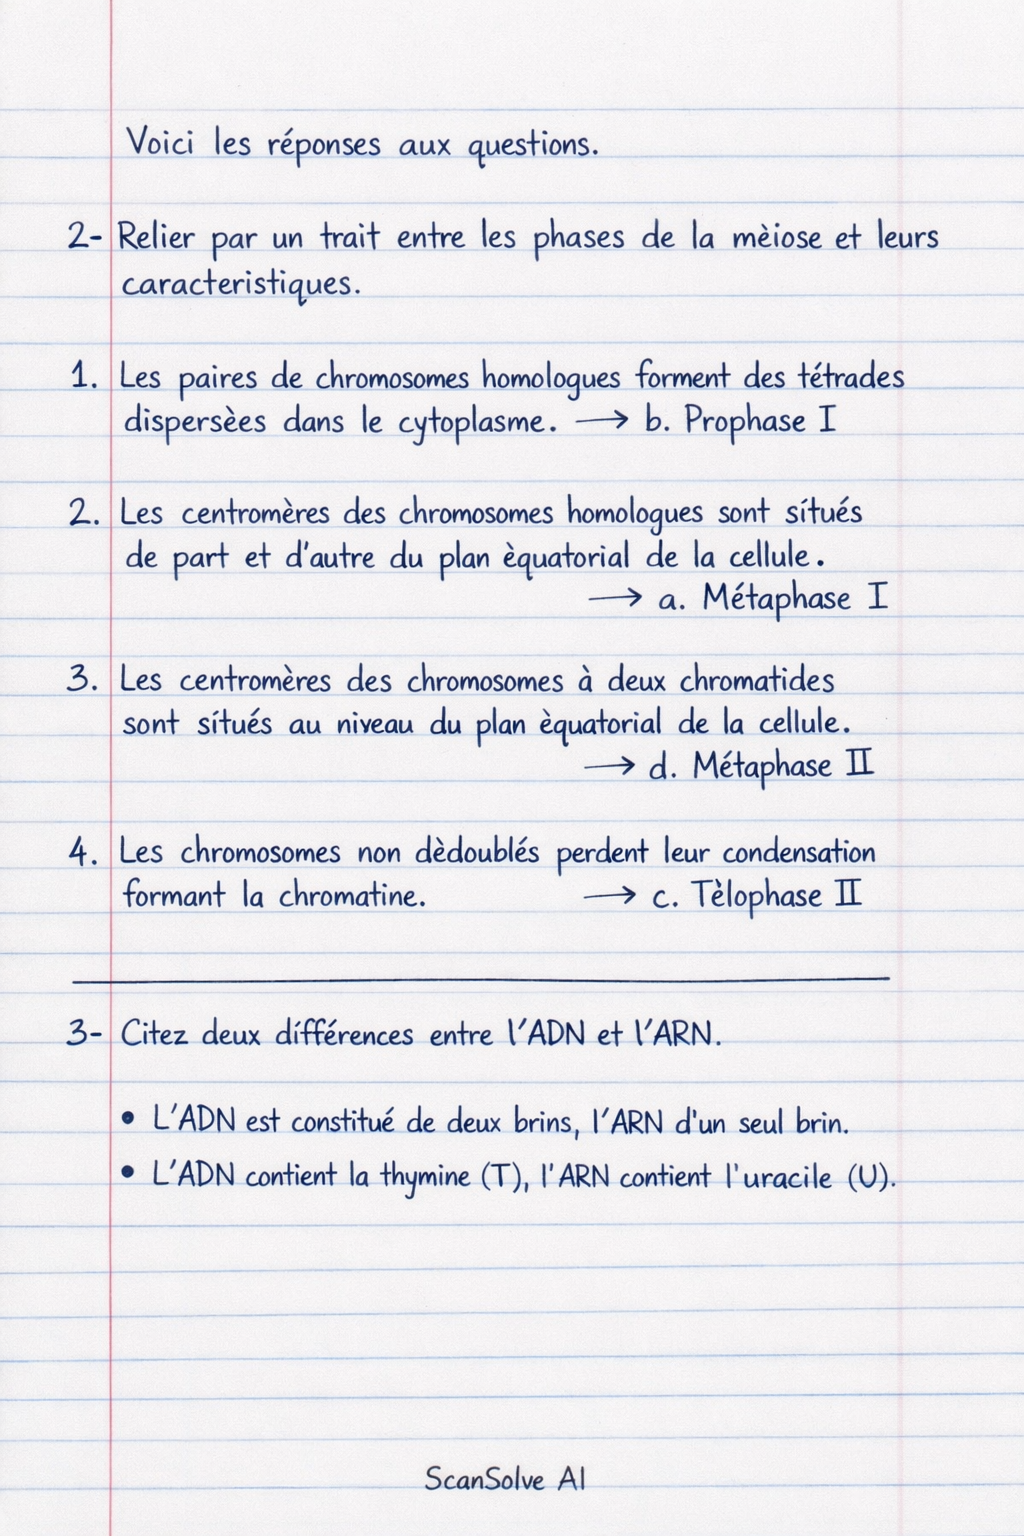 Voici les réponses aux questions.
2- Relier par un trait entre les phases de la mèiose et leurs
caracteristiques.
1. Les paires de chromosomes homologues forment des tétrades
dispersèes dans le cytoplasme. → b. Prophase I
2. Les centromères des chromosomes homologues sont sítués
de part et d'autre du plan èquatorial de la cellule.
→ a. Métaphase I
3. Les centromères des chromosomes à deux chromatides
sont sítués au niveau du plan èquatorial de la cellule.
→ d. Métaphase II
4. Les chromosomes non dèdoublés perdent leur condensation
formant la chromatine. → c. Tèlophase II
3- Citez deux dífférences entre l'ADN et l'ARN.
• L'ADN est constitué de deux brins, l'ARN d'un seul brin.
• L'ADN contient la thymine (T), l'ARN contient l'uracile (U).
ScanSolve AI